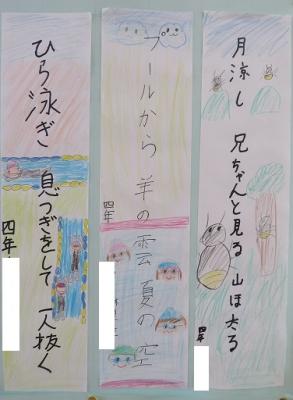 月涼し 兄ちゃんと見る 山ほたる
四年
プールから 羊の雲 夏の空
四年
ひら泳ぎ 息つぎをして 一人抜く
四年